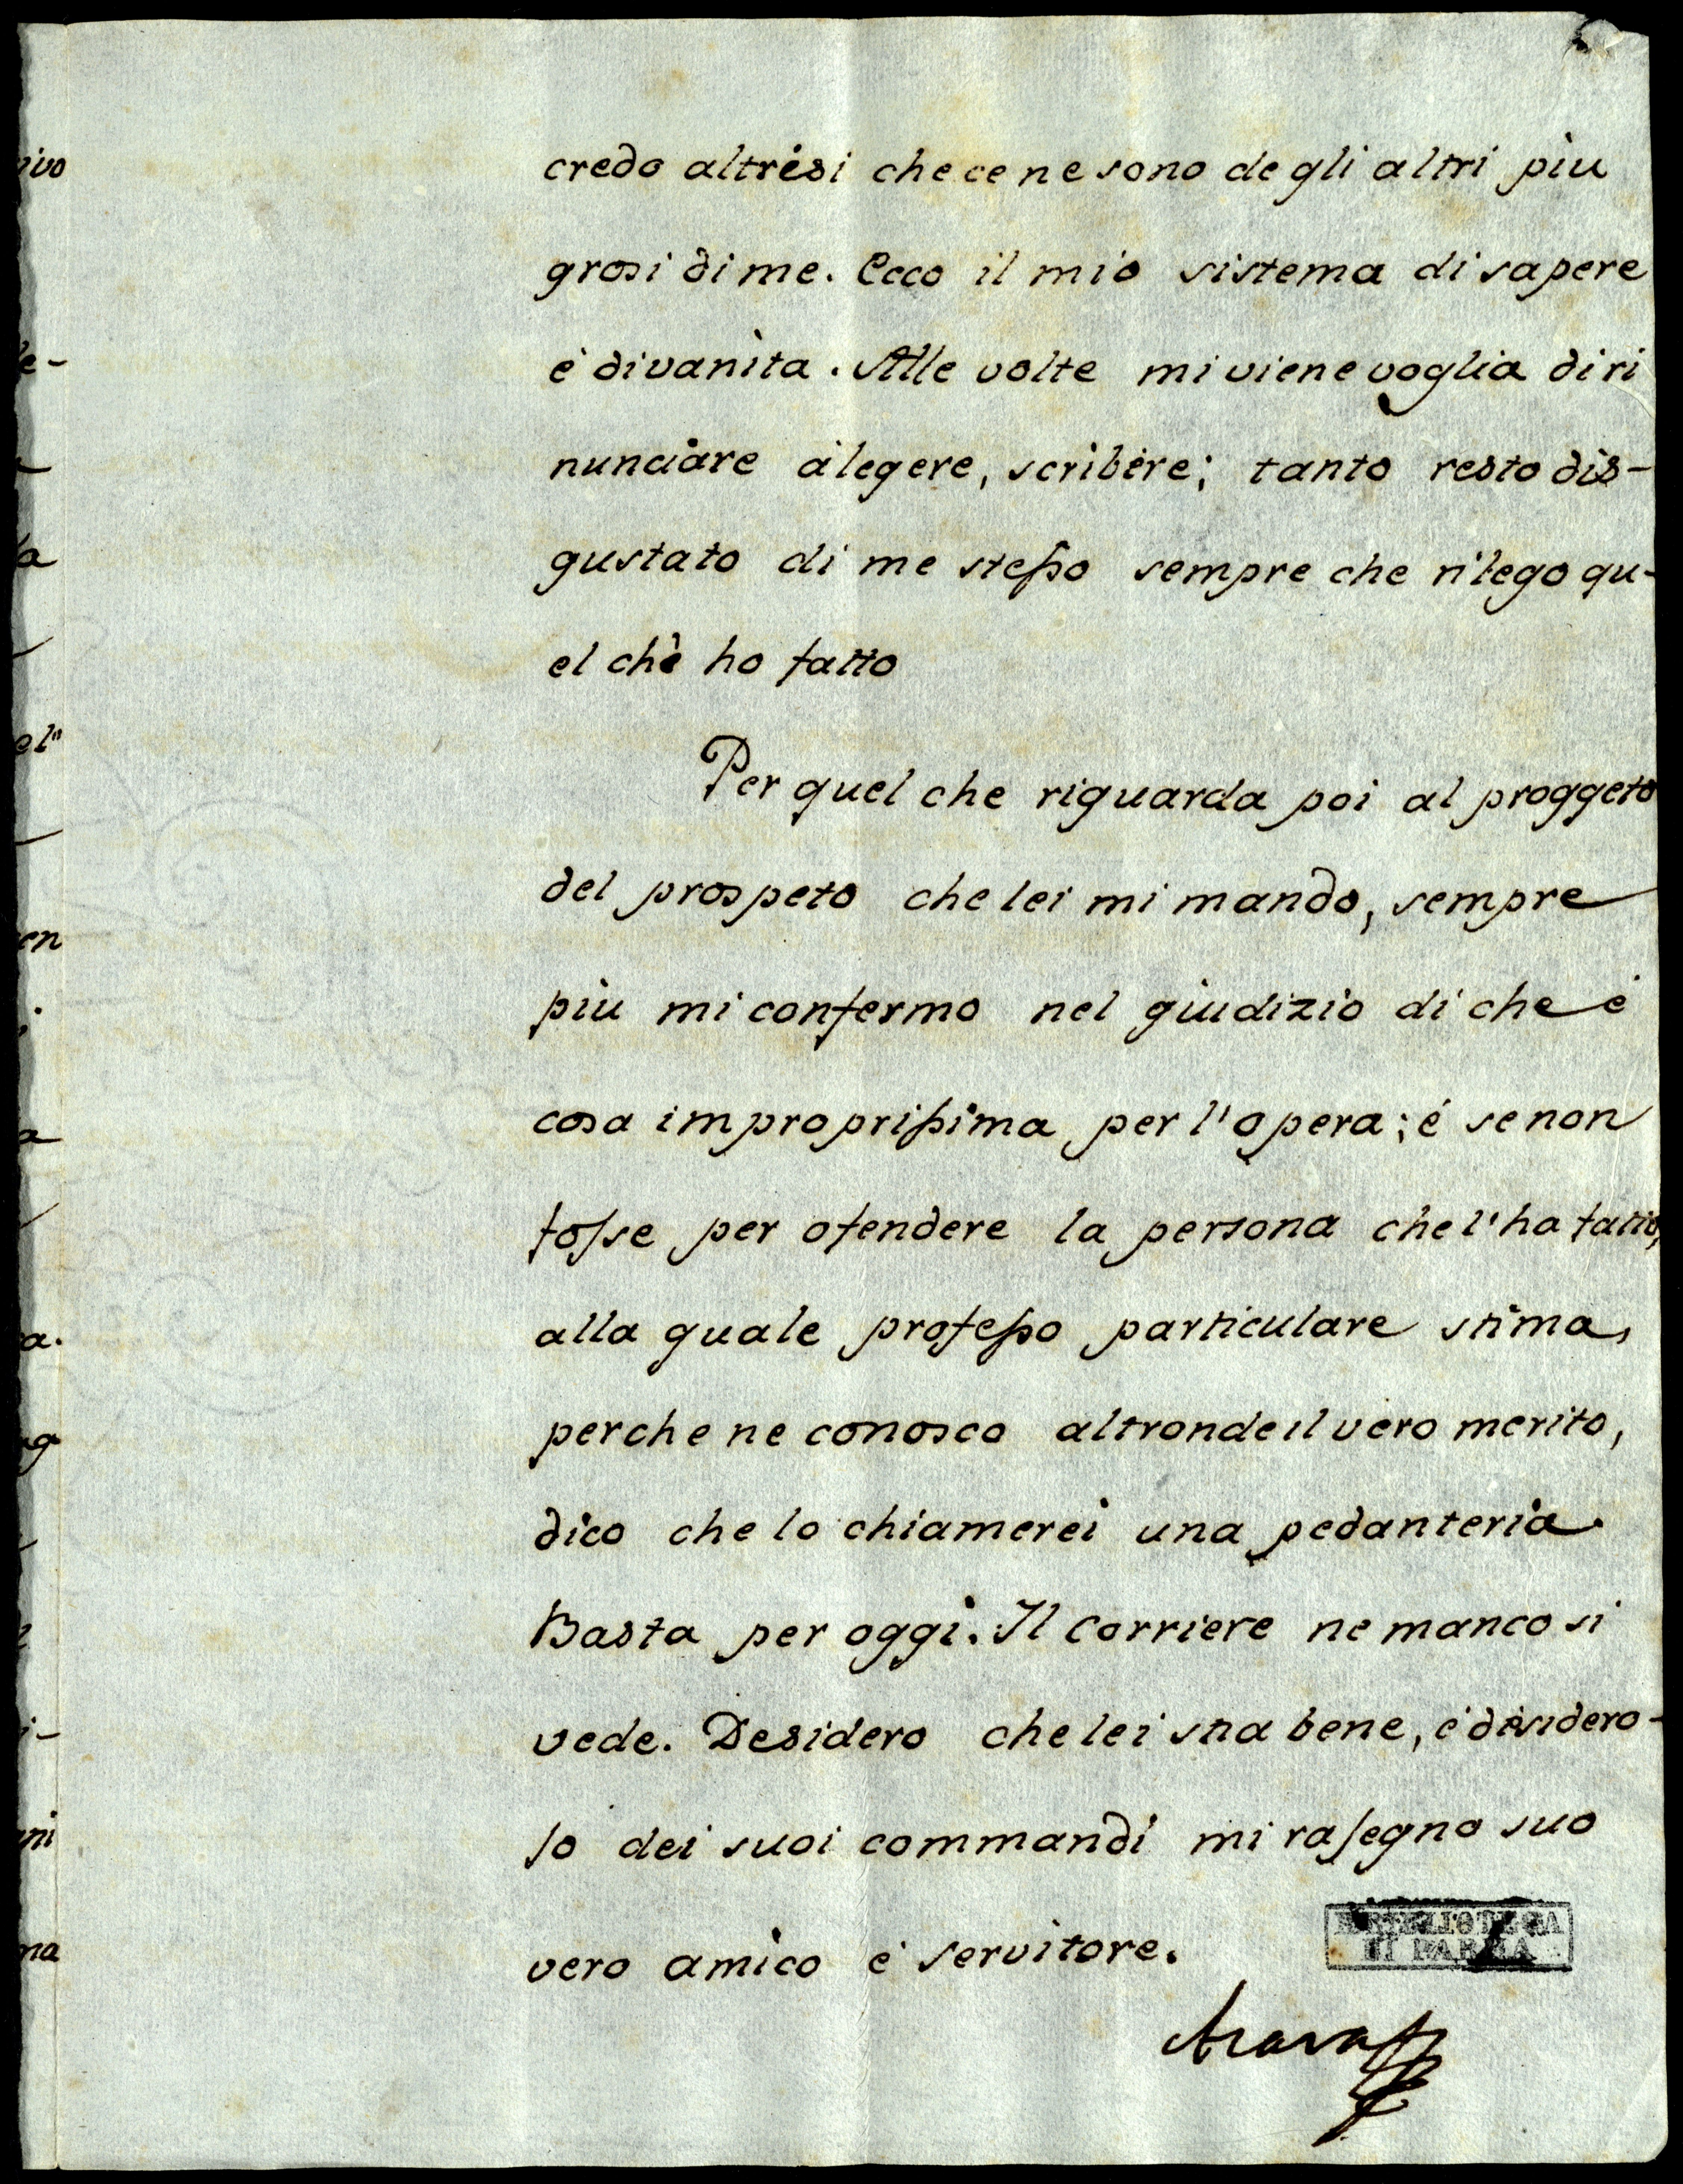 credo altresi che ce ne sono degli altri piu
grosi di me. Ecco il mio sistema di sapere
è di vanita. Alle volte mi viene voglia di ri
nunciare à legere, scribere; tanto resto dis-
gustato di me stesso sempre che rilego qu-
el chè ho fatto
Per quel che riguarda poi al proggeto
del prospeto che lei mi mando, sempre
piu mi confermo nel giudizio di che é
cosa improprissima per l'opera; é se non
fosse per ofendere la persona che l'ha fatto,
alla quale professo particulare stima,
perche ne conosco altronde il vero merito,
dico che lo chiamerei una pedanteria.
Basta per oggi. Il Corriere ne manco si
vede. Desidero che lei stia bene, é disidero-
so dei suoi commandi mi rasegno suo
vero amico é servitore.
BIBLIOTECA
DI PARMA